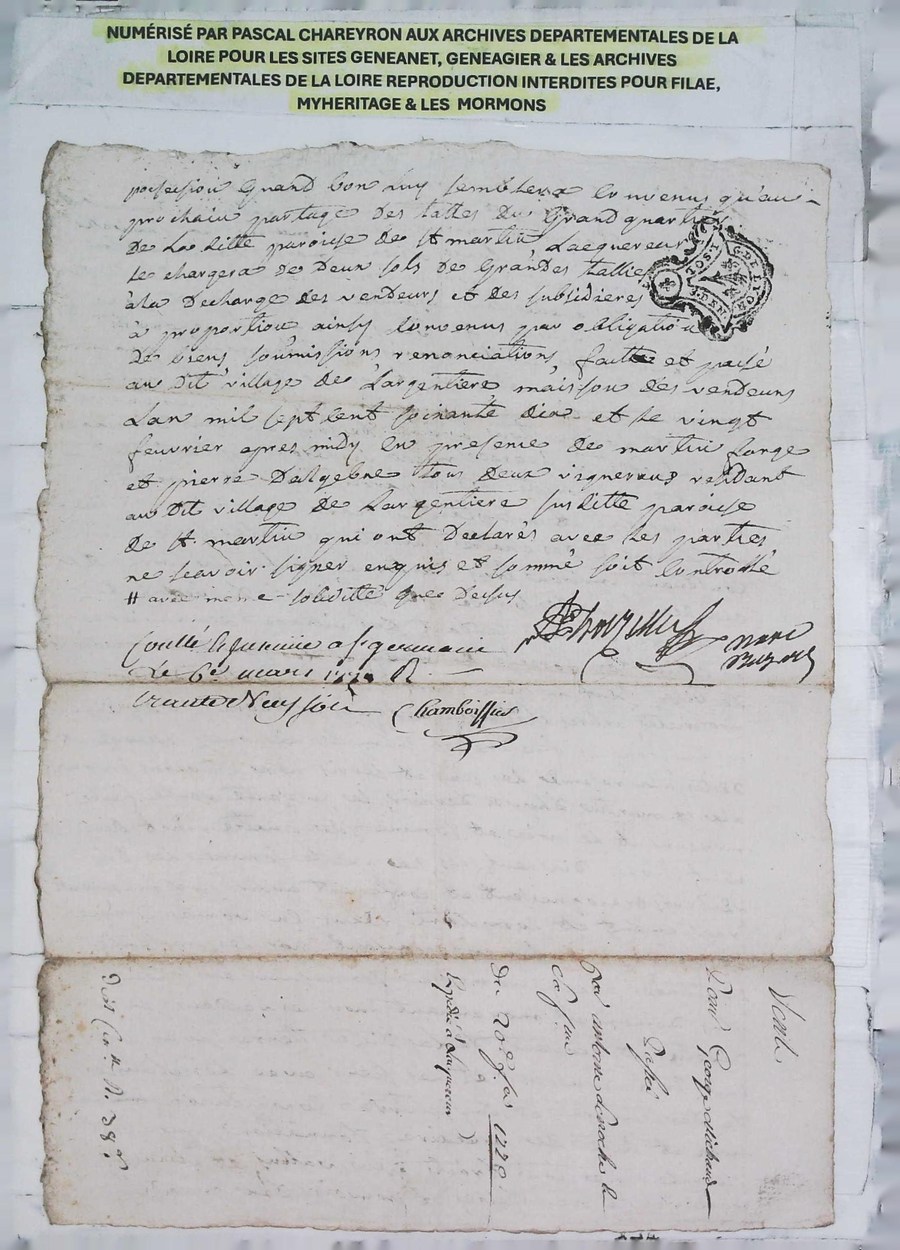 NUMÉRISÉ PAR PASCAL CHAREYRON AUX ARCHIVES DEPARTEMENTALES DE LA
LOIRE POUR LES SITES GENEANET, GENEAGIER & LES ARCHIVES
DEPARTEMENTALES DE LA LOIRE REPRODUCTION INTERDITES POUR FILAE,
MYHERITAGE & LES MORMONS
possession quand bon luy semblera convenus qu'au
prochain partage des talles du Grand quartier
de la ditte paroisse de St martin Lacquereur
se chargera de Deux sols de Grandes tallies
à la Decharge des vendeurs et des subsidieres
à proportion ainsy convenus par obligation
de biens soumissions renonciations faitte et passé
au dit village de Largentiere maison des vendeurs
Lan mil sept cent soixante dix et le vingt
feuvrier apres midy en presence de martin Longe
et pierre tous deux vignerons residant
au dit village de Largentiere susditte paroisse
de St martin qui ont Declarés avec les parties
ne scavoir signer enquis et sommé soit controllé
# avec meme solidité que Dessus
a St germain
Le 6e mars
Chamboissier
Vente
Pour George
Passé
Par antoine
Du 20e
Expédié à Lacquereur